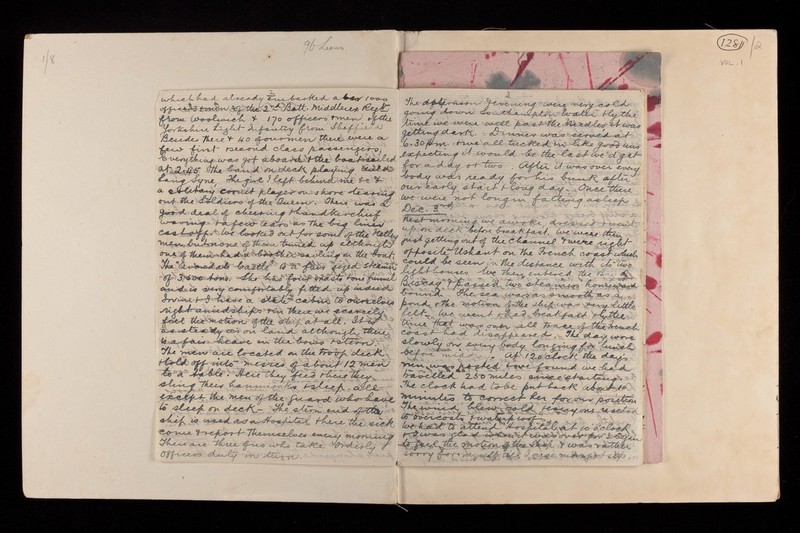 1/8
96 Leaves
which had already embarked about 1000
officers & men of the 2nd Batt. Middlesex Regt
from Woolwich & 170 officers & men of the
Yorkshire Light Infantry from Sheffield
Besides these & 40 of our men there were a
few first & second class passengers.
Everything was got aboard & the boat sailed
at 2.45 The band on deck playing Auld
Lang Syne. The girl I left behind me &c &
a solitary cornet player on shore
out the Soldiers of the Queen. There was a
good deal of cheering & handkerchief
waving & a few tears as the big liner
cast off. We looked out for some of the Netley
men but none of them turned up although
one of them had a brother sailing in the boat.
The "Avondale Castle" is a fair sized steamer
of 3,500 tons. She has four masts & one funnel
and is very comfortably fitted up indeed
Irvine & I have a state cabin to ourselves
right amidships & in there we scarcely
feel the motion of the ship at all. It is
as steady as on land although there
is a fair heave in the bows & stern.
The men are located on the troop deck
& told off into "messes of about 12 men
to a table". Here they feed & here they
sling their hammocks & sleep, all
except the men of the guard who have
to sleep on deck. The stern end of the
ship is used as a hospital & here the sick
come & report themselves every morning
There are three of us who take Orderly
Officers duty in turn
128 /2
VOL. 1
2
The afternoon & evening were very cold
going down Southampton Water & by the
time we were well past the Needles it was
getting dark. Dinner was served at
6.30 pm & we all tucked in like good uns
expecting it would be the last we'd get
for a day or two. After it was over every
body was ready for his bunk after
our early start & long day. Once there
we were not long in falling asleep
Dec. 3rd
Next morning we awoke, dressed & went
up on deck before breakfast. We were then
just getting out of the channel & were right
opposite Ushant on the French coast which
could be seen in the distance with its two
lighthouses. We then entered the Bay of
Biscay & passed two steamers homeward
bound. The sea was as smooth as a
pond & the motion of the ship was very little
felt. We went & had breakfast & by the
time that was over all trace of the French
coast had disappeared. The day wore
slowly on every body longing for lunch
before midday. At 12 o'clock the day's
run was posted & we found we had
travelled 230 miles since starting.
The clock had to be put back about 20
minutes to correct her for our position
The wind blew cold & every one resorted
to overcoats &
We had to attend Hospital at 10 o'clock
& I was glad when it was over for I began
to feel the motion of the ship & was rather
sorry for myself